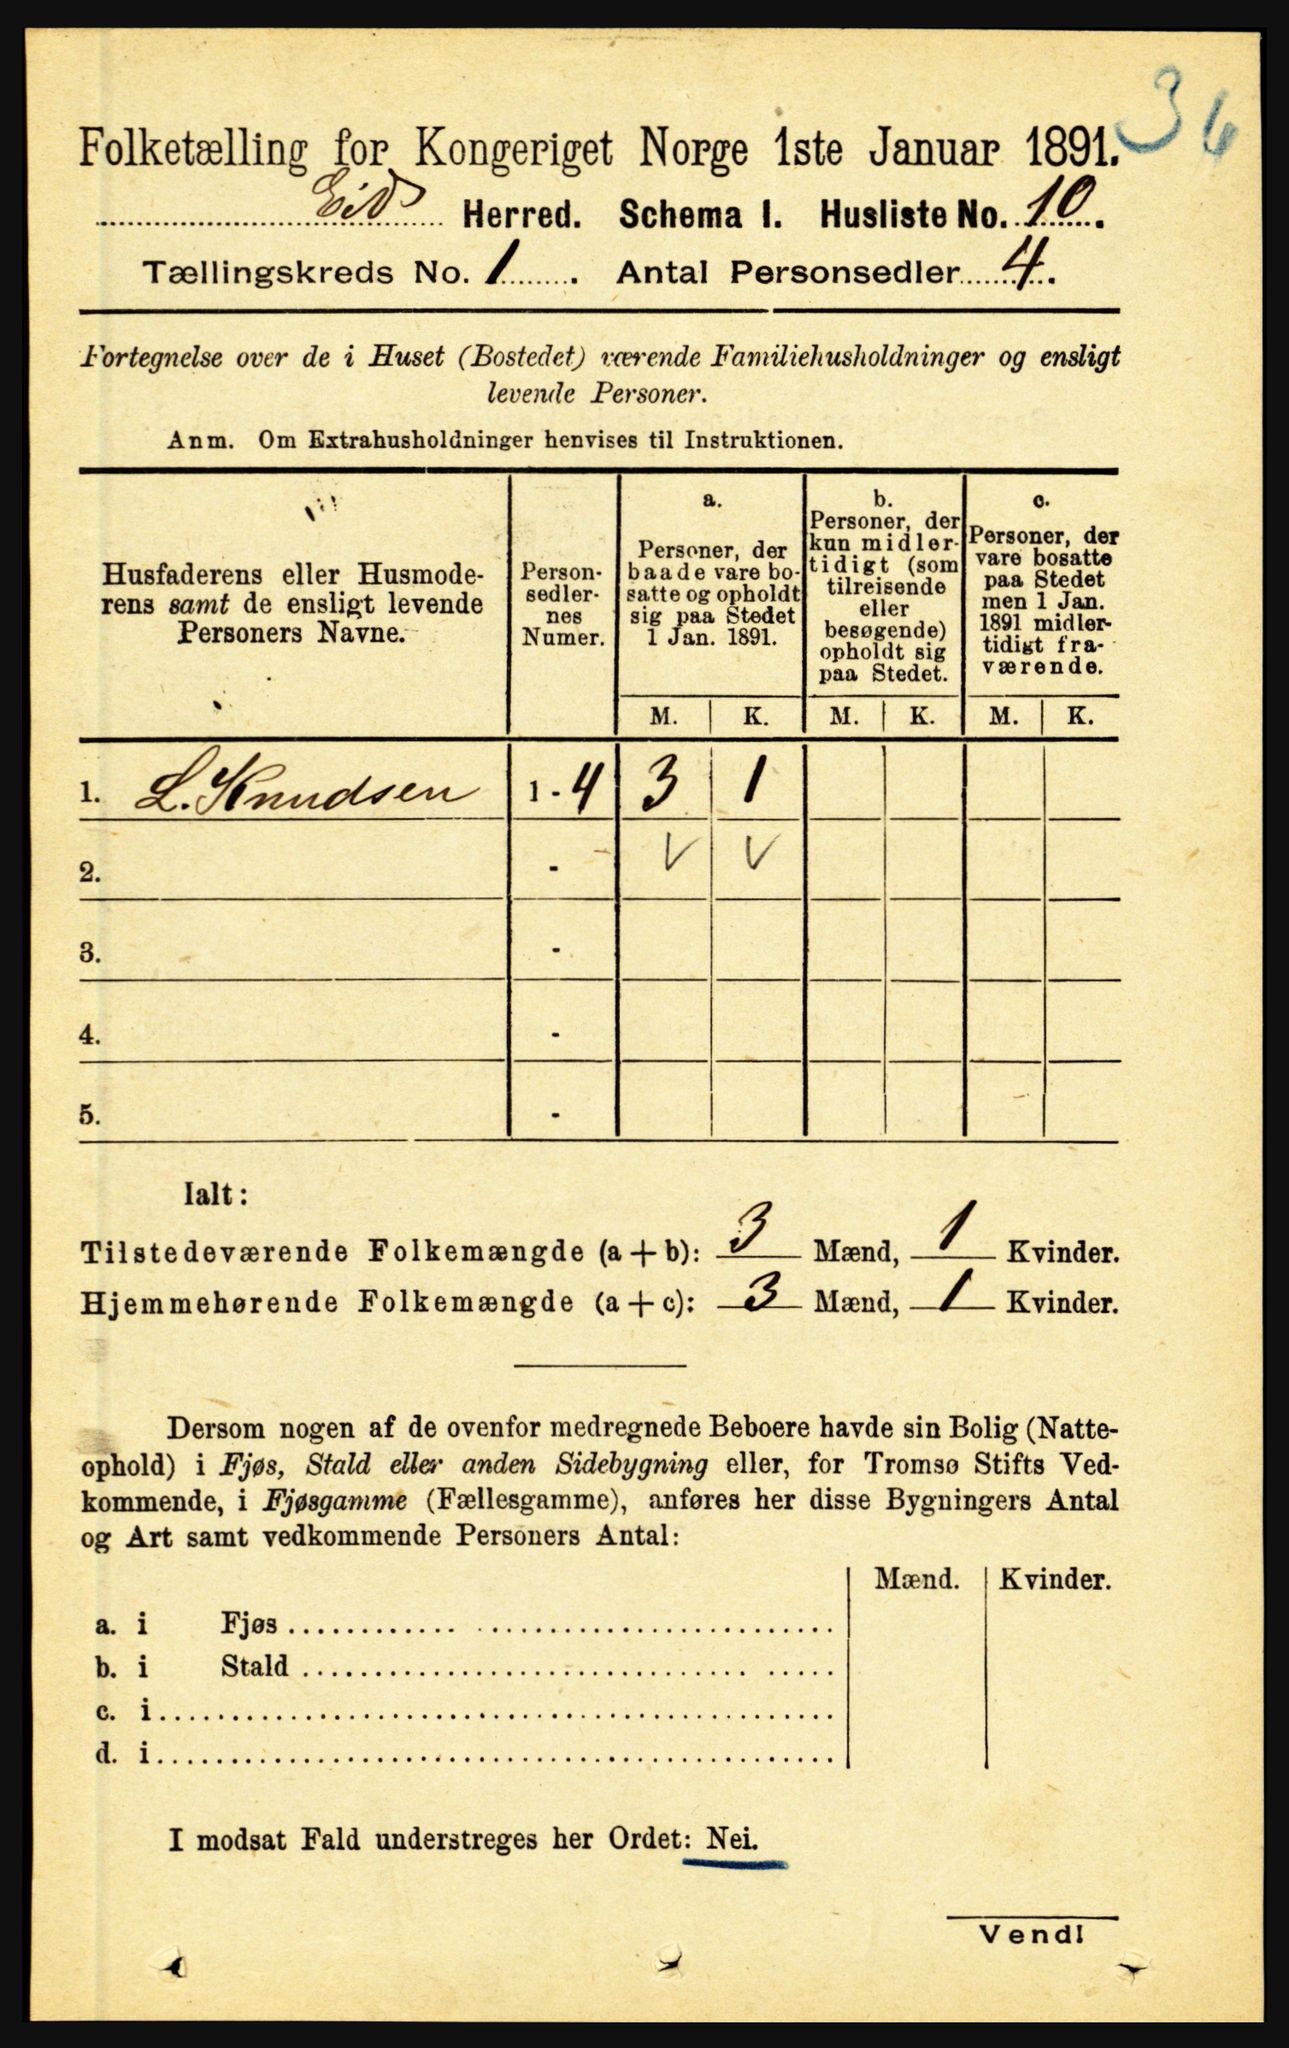 36
Folketælling for Kongeriget Norge 1ste Januar 1891.
Eid Herred. Schema I. Husliste No. 10.
Tællingskreds No. 1. Antal Personsedler 4.
Fortegnelse over de i Huset (Bostedet) værende Familiehusholdninger og ensligt
levende Personer.
Anm. Om Extrahusholdninger henvises til Instruktionen.
Husfaderens eller Husmode-
rens samt de ensligt levende
Personers Navne.
Person-
sedler-
nes
Numer.
a.
Personer, der
baade vare bo-
satte og opholdt
sig paa Stedet
1 Jan. 1891.
b.
Personer, der
kun midler-
tidigt (som
tilreisende
eller
besøgende)
opholdt sig
paa Stedet.
c.
Personer, der
vare bosatte
paa Stedet
men 1 Jan.
1891 midler-
tidigt fra-
værende.
M. K. M. K. M. K.
1. L. Knudsen 1-4 3 1
2. - V V
3. -
4. -
5. -
Ialt:
Tilstedeværende Folkemængde (a + b): 3 Mænd, 1 Kvinder.
Hjemmehørende Folkemængde (a + c): 3 Mænd, 1 Kvinder.
Dersom nogen af de ovenfor medregnede Beboere havde sin Bolig (Natte-
ophold) i Fjøs, Stald eller anden Sidebygning eller, for Tromsø Stifts Ved-
kommende, i Fjøsgamme (Fællesgamme), anføres her disse Bygningers Antal
og Art samt vedkommende Personers Antal:
Mænd. Kvinder.
a. i Fjøs
b. i Stald
c. i
d. i
I modsat Fald understreges her Ordet: Nei.
Vend!